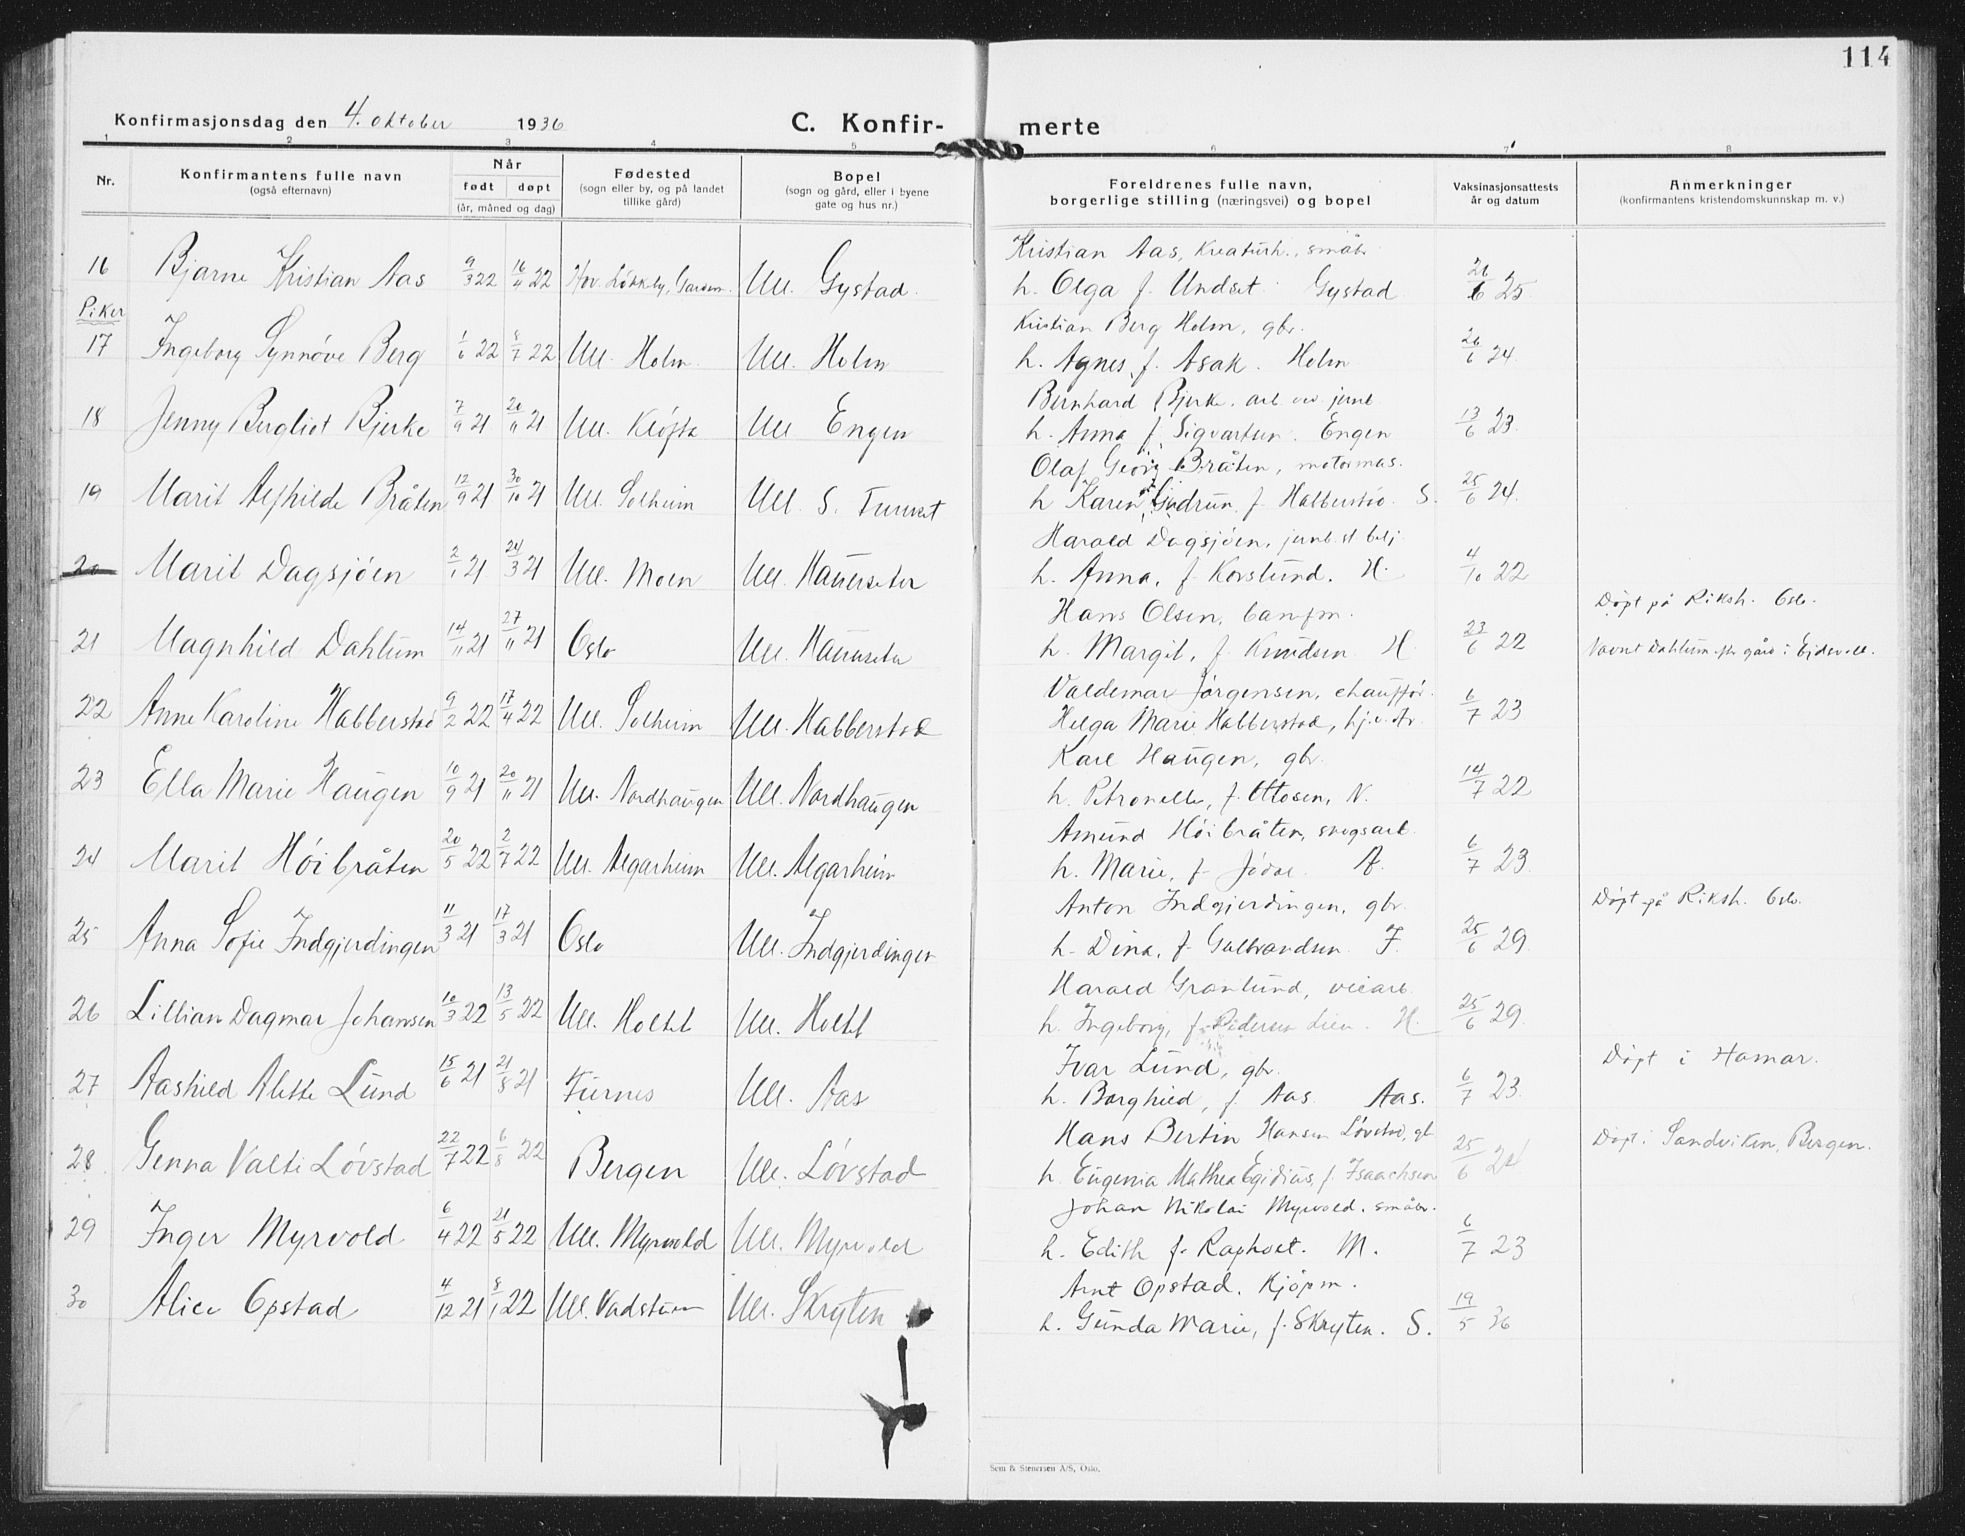 114
Konfirmasjonsdag den 4. oktober 1936
C. Konfir- merte
1 2 3 4 5 6 7 8
Nr.
Konfirmantens fulle navn
(også efternavn)
Når
født døpt
(år, måned og dag)
Fødested
(sogn eller by, og på landet
tillike gård)
Bopel
(sogn og gård, eller i byene
gate og hus nr.)
Foreldrenes fulle navn,
borgerlige stilling (næringsvei) og bopel
Vaksinasjonsattests
år og datum
Anmerkninger
(konfirmantens kristendomskunnskap m. v.)
Kristian Aas, kreaturh., småbr.
16 Bjarne Kristian Aas 9/3 22 16/4 22 Hov. Ull. Gystad h. Olga f. Undset Gystad 25
Piker
Kristian Berg Holm, gbr.
17 Ingeborg Synnøve Berg 1/6 22 8/7 22 Ull. Holm Ull. Holm h. Agnes, f. Asak. Holm 26/6 24
Bernhard Bjerke, arb. jernb.
18 Jenny Bergliot Bjerke 7/9 21 20/11 21 Ull. Kløfta Ull Engen h. Anna f. Sigvartsen. Engen 13/6 23
Olaf Georg Bråten, motormas.
19 Marit Alfhilde Bråten 12/9 21 30/10 21 Ull. Solheim Ull. S. h Karen Gudrun, f. Habberstad. S. 25/6 24
Harald Dagsjøen, jernb.st.betj.
20 Marit Dagsjöen 2/1 21 24/3 21 Ull. Moen Ull. Hauerseter h. Anna, f. Korslund. H. 4/10 22
Hans Olsen, Døpt på Riksh. Oslo.
21 Magnhild Dahlum 14/11 21 27/11 21 Oslo Ull. Hauerseter h. Margit, f. Knudsen H. 23/6 22 Navnet Dahlum gård i Eidsvoll.
Valdemar Jørgensen, chauffør.
22 Anne Karoline Habberstad 9/2 22 17/4 22 Ull. Solheim Ull. Habberstad Helga Marie Habberstad, 6/7 23
Karl Haugen, gbr.
23 Ella Marie Haugen 10/9 21 20/11 21 Ull. Nordhaugen Ull. Nordhaugen h. Petronelle, f. Ottosen, N. 14/7 22
Amund Höibråten, skogsarb.
24 Marit Höibråten 20/5 22 2/7 22 Ull. Algarheim Ull. Algarheim h. Marie, f. Jödal. A. 6/7 23
Anton Indgjerdingen, gbr. Døpt på Riksh. Oslo.
25 Anna Sofie Indgjerdingen 11/3 21 17/3 21 Oslo Ull. Indgjerdingen h. Dina, f. Gulbrandsen. I. 25/6 29
Harald Grønlund, veiarb.
26 Lillian Dagmar Johansen 10/3 22 13/5 22 Ull. Holtet Ull. Holtet h. Ingeborg, f. Pedersen Lien. H. 25/6 29
Ivar Lund, gbr. Døpt i Hamar.
27 Aashild Alette Lund 15/6 21 21/8 21 Furnes Ull. Aas h. Borghild, f. Aas. Aas. 6/7 23
Hans Bertin Hansen Løvstad, gb Døpt i Sandviken, Bergen.
28 Genna Valti Lövstad 22/7 22 6/8 22 Bergen Ull. Lövstad h. Eugenia Mathea Egidius, f. Isaachsen 25/6 24
Johan Nikolai Myrvold. småbr.
29 Inger Myrvold 6/4 22 21/5 22 Ull. Myrvold Ull. Myrvold h. Edith f. Raphoel. M. 6/7 23
Arnt Opstad. Kjøpm.
30 Alice Opstad 4/12 21 8/1 22 Ull. Ull. Skryten h. Gunda Marie, f. Skryten. S. 19/5 36
Sem & Stenersen A/S, Oslo.